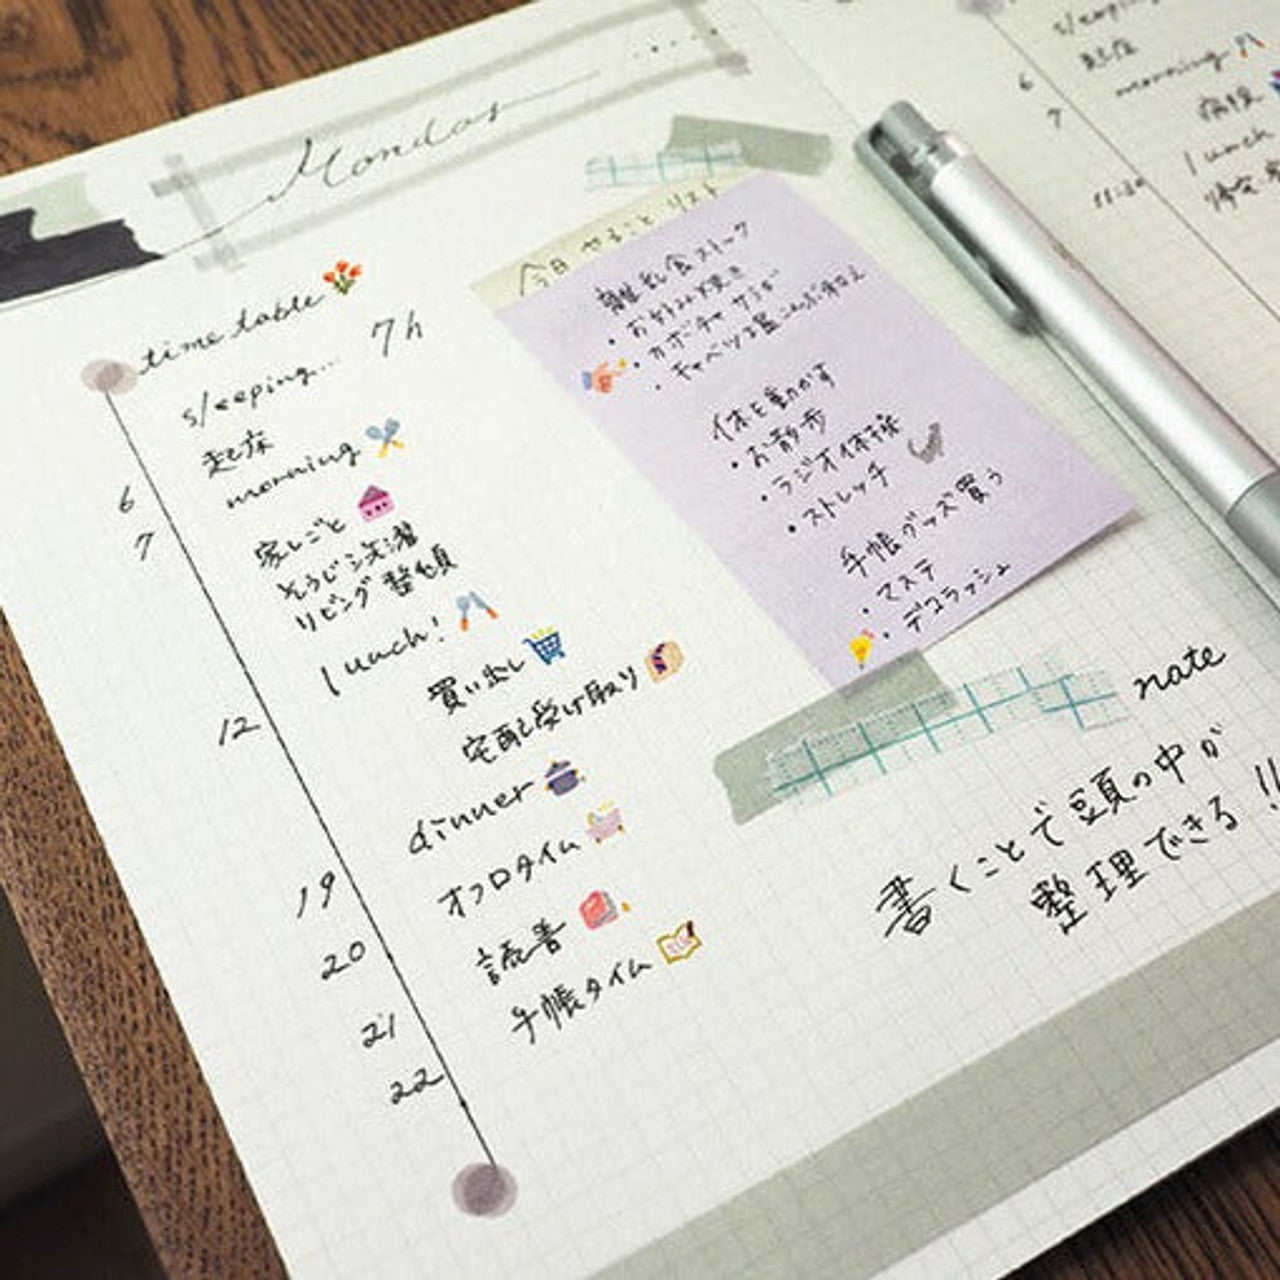 Monday
time table
sleeping... 7h
起床
6 morning
7
家しごと
そうじ 洗濯
リビング 整頓
lunch!
12
買い出し
宅配受け取り
dinner
19
オフロタイム
20
読書
21
手帳タイム
22
今日やることリスト
離乳食ストック
・お好み焼き
・カボチャサラダ
・キャベツ塩こんぶ和え
体を動かす
・お散歩
・ラジオ体操
・ストレッチ
手帳グッズ買う
・マステ
・デコラッシュ
note
書くことで頭の中が
整理できる!!
sleeping
起床
6 morning
7
lunch
11:30
帰宅